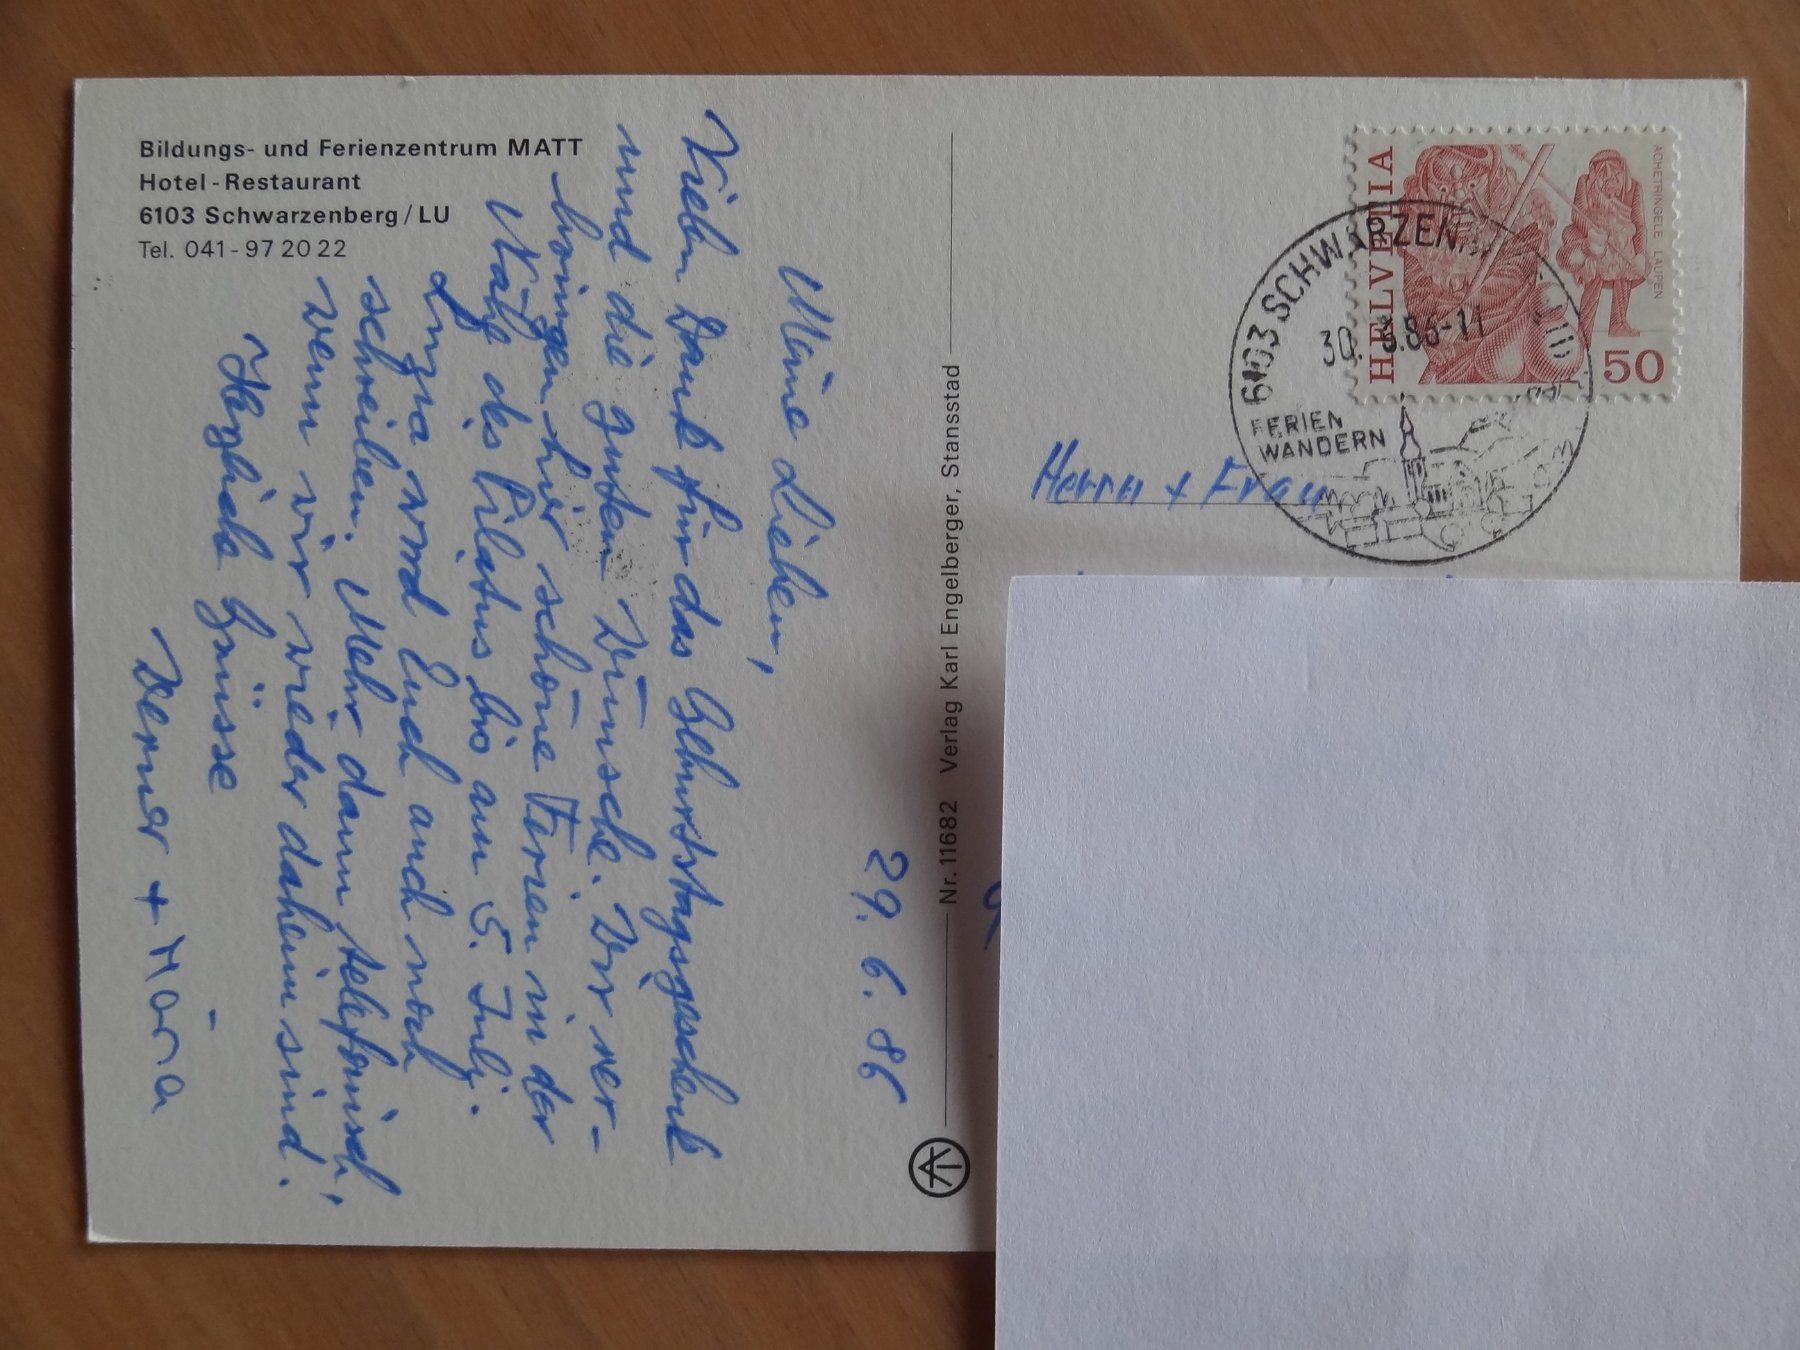 Bildungs- und Ferienzentrum MATT
Hotel-Restaurant
6103 Schwarzenberg/LU
Tel. 041-97 20 22
29.6.86
Meine Lieben,
Vielen Dank für das Geburtstagsgeschenk
und die guten Wünsche. Wir ver-
bringen hier schöne Ferien in der
Nähe des Pilatus bis am 5. July.
wird Euch auch noch
schreiben. Mehr dann telefonisch,
wenn wir wieder daheim sind.
Herzliche Grüsse
Werner +
Nr. 11682 Verlag Karl Engelberger, Stansstad
HELVETIA
ACHETRINGELE LAUPEN
50
6103 SCHWARZEN
30. .86-11
FERIEN
WANDERN
Herrn + Frau